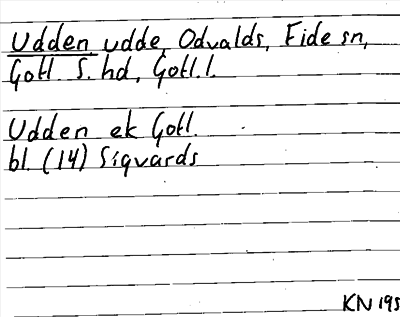 Udden udde, Odvalds, Eide sn,
Gotl. S. hd, Gotl. l.
Udden ek Gotl.
bl. (14) Sigvards
KN 195